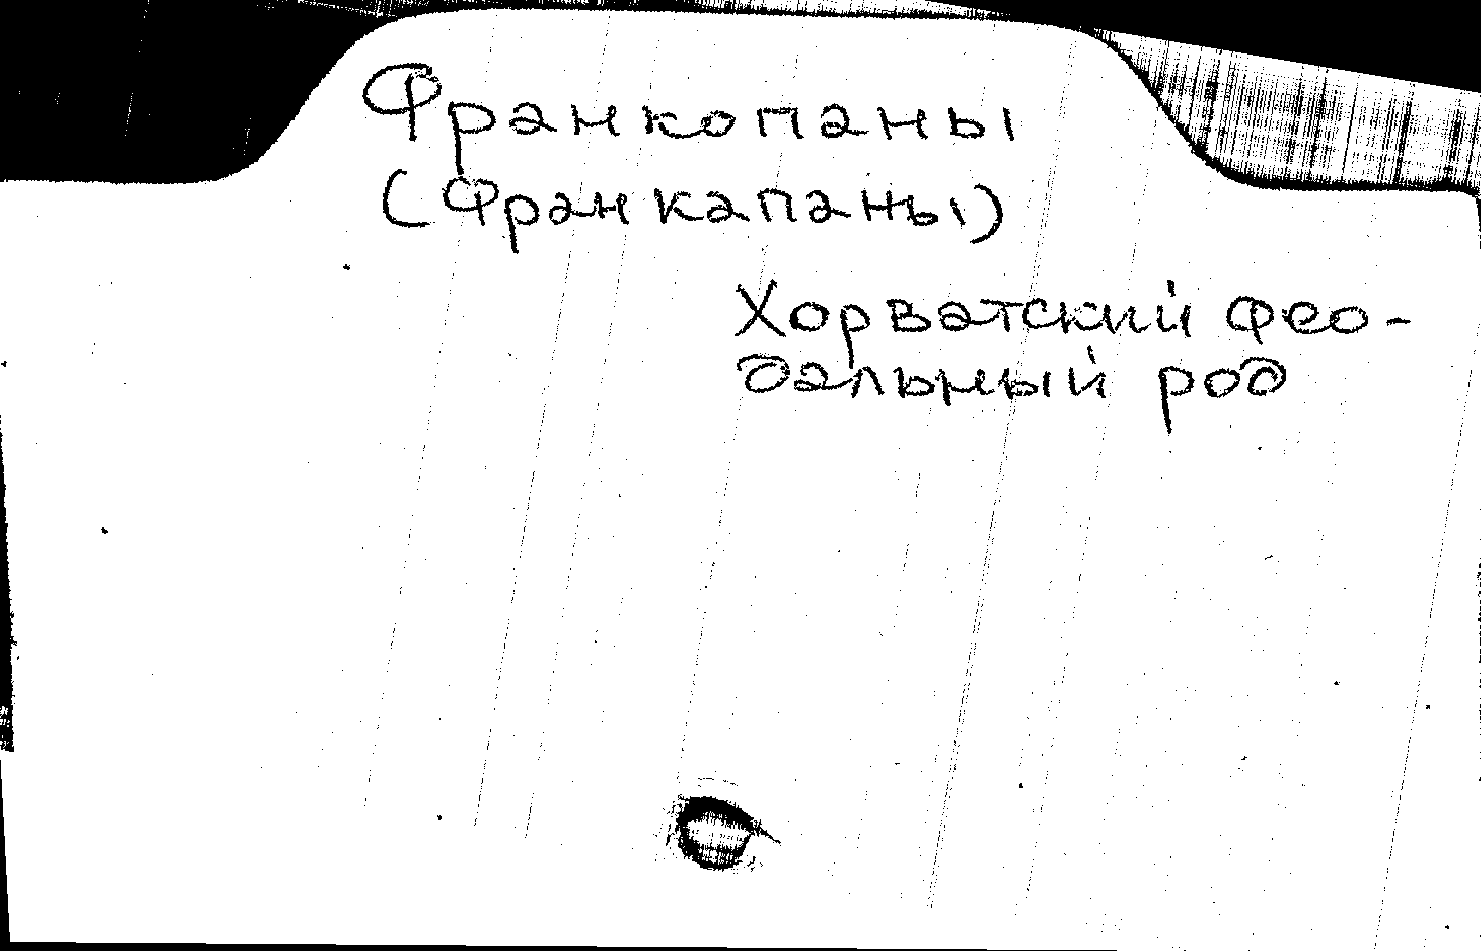 Франкопаны
(Франкапаны)
Хорватский фео-
дальный род